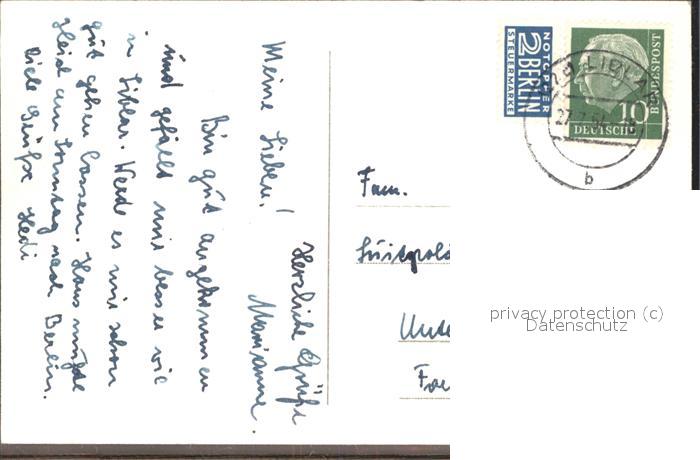 Meine Lieben!
Bin gut angekommen
und gefällt mir besser wie
in Liblar. Werde es mir schon
gut gehen lassen. Hans mußte
leid am Sonntag nach Berlin.
Viele Grüße Hedi
Herzliche Grüße
Marianne.
NOTOPFER
2 BERLIN
STEUERMARKE
DEUTSCHE
BUNDESPOST
10
LIBLAR
27.7.54
b
Fam.
Luitpold
Unte
privacy protection (c)
Datenschutz